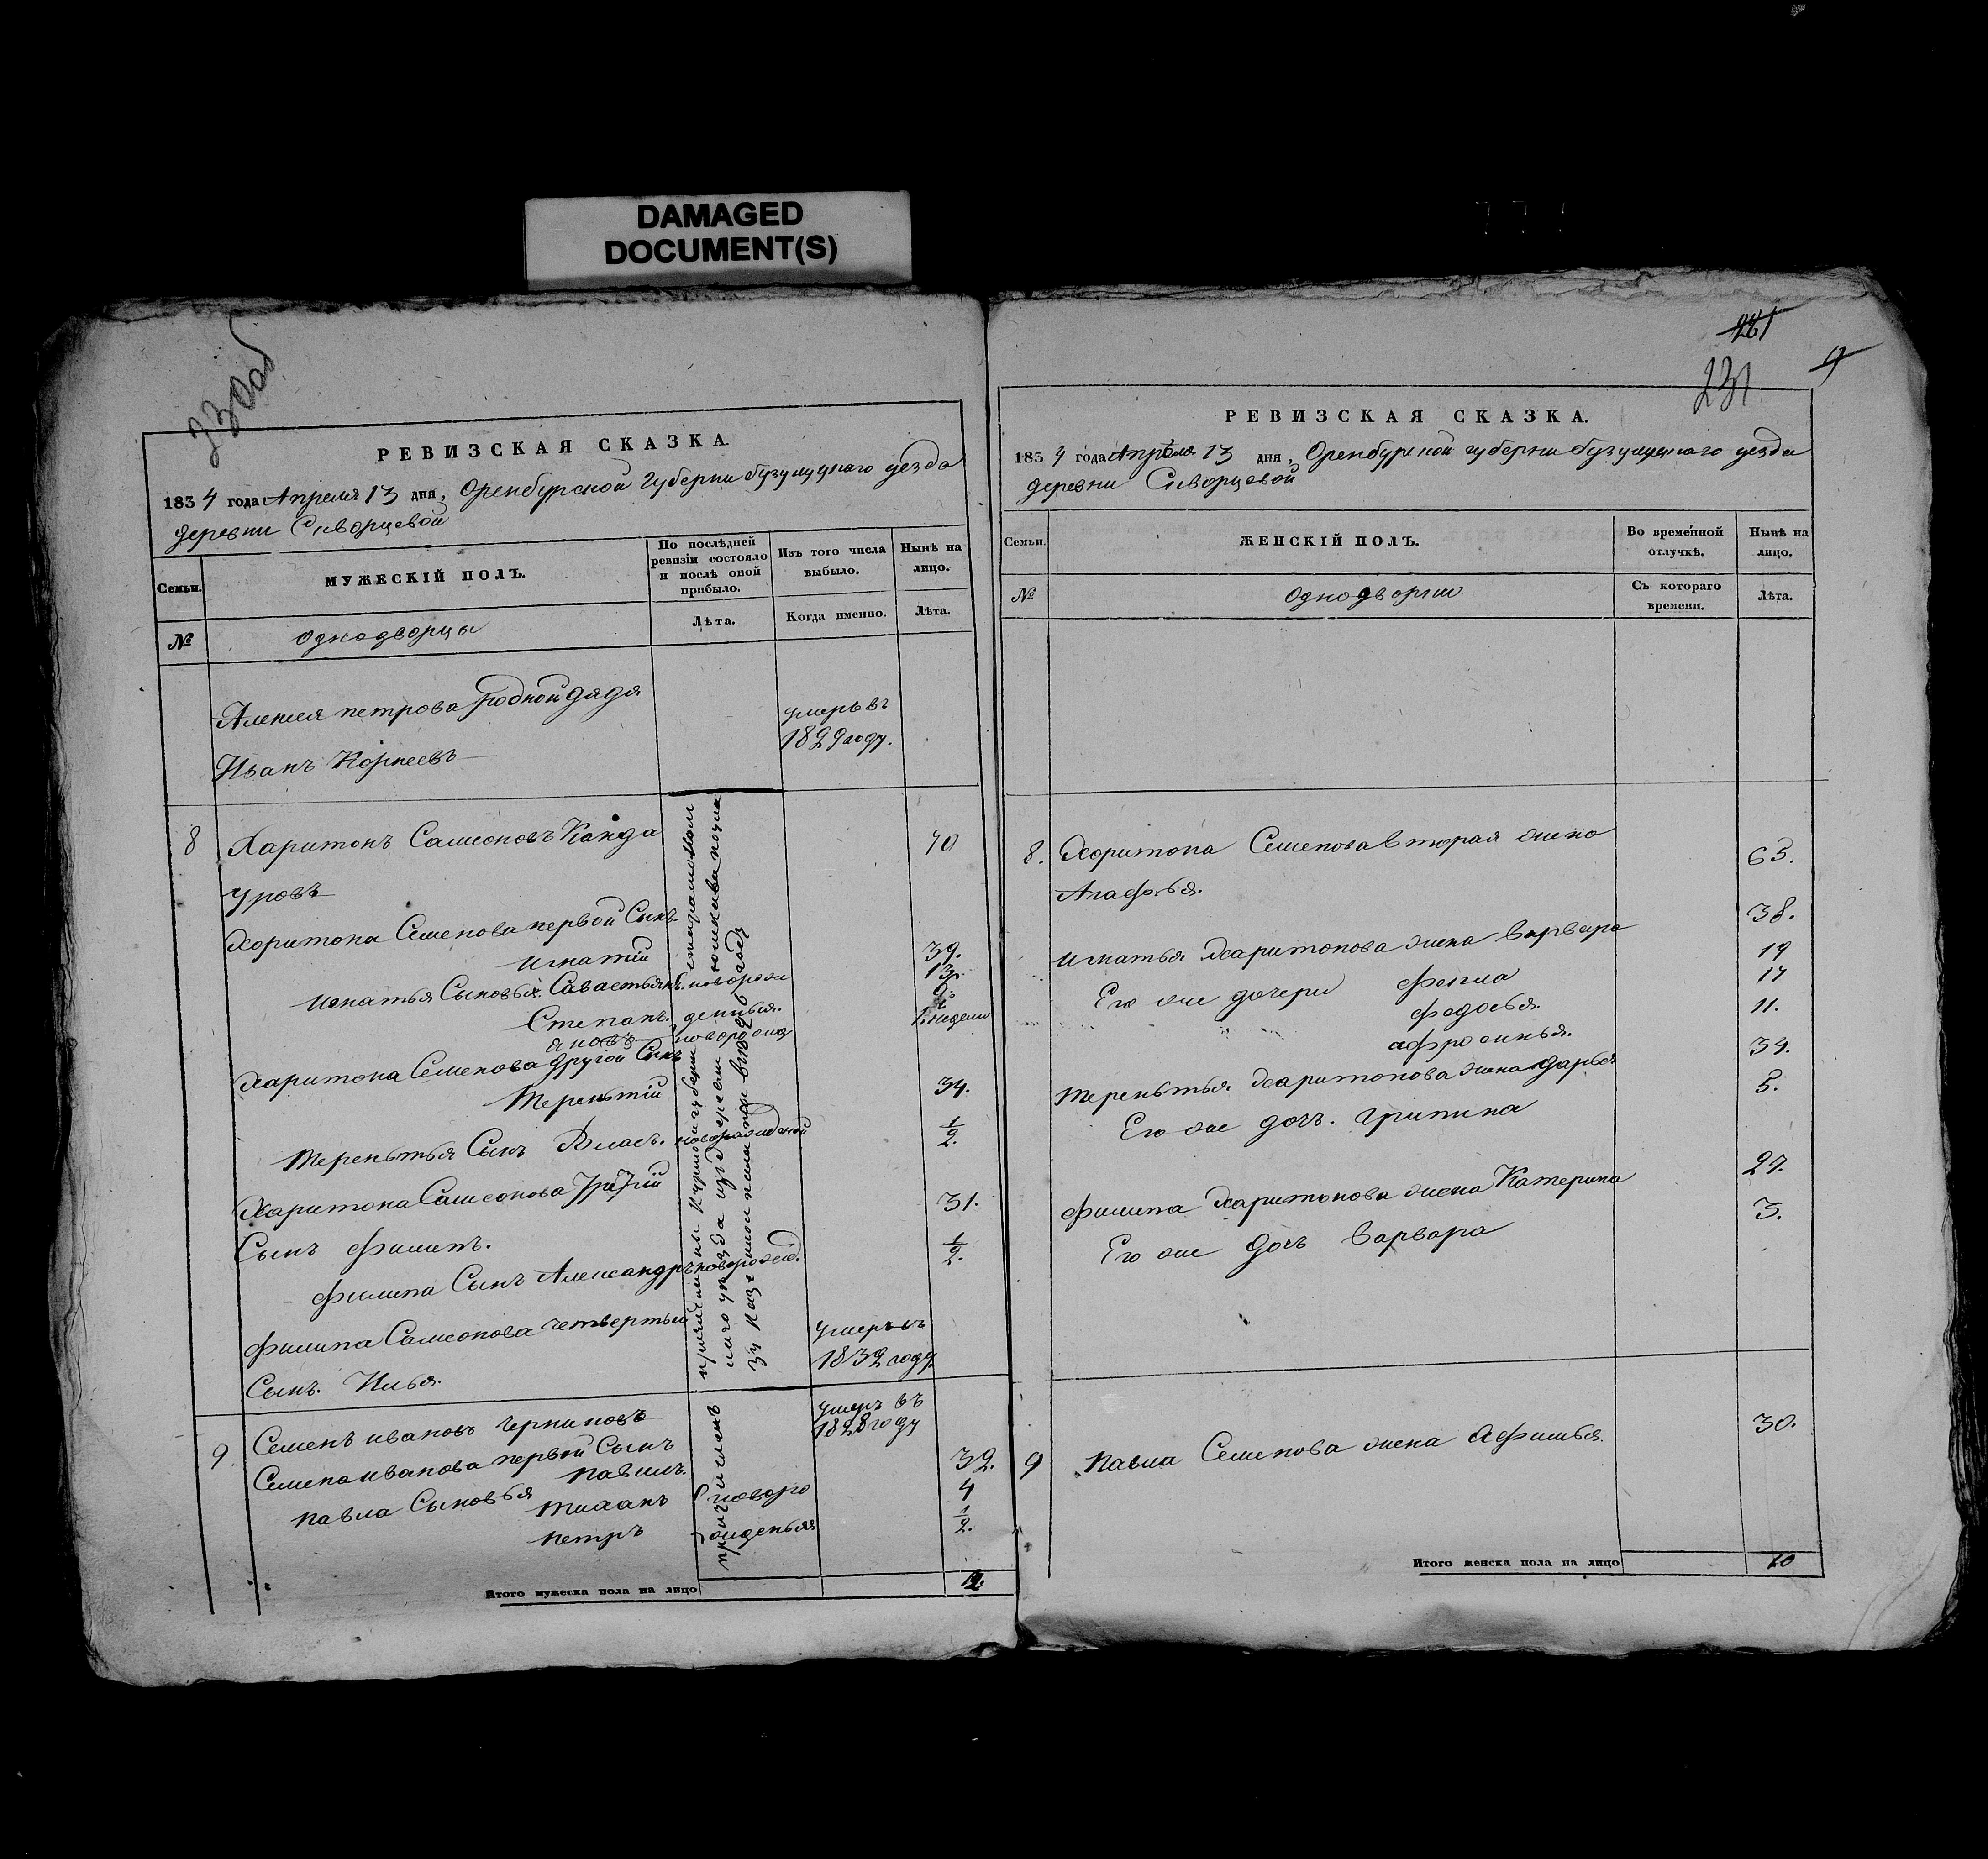 DAMAGED
DOCUMENT(S)
230об
РЕВИЗСКАЯ СКАЗКА.
1834 года Апреля 13 дня, Оренбурской губерни бузулуцкаго уезда
деревни Скворцевой
Семьи.
МУЖЕСКІЙ ПОЛЪ.
По послѣдней
ревизіи состояло
и послѣ оной
прибыло.
Изъ того числа
выбыло.
Нынѣ на
лицо.
№
однодворцы
Лѣта.
Когда именно.
Лѣта.
Алексея петрова родной дядя
Иванъ Корнеевъ
умеръ въ
1829 году.
8
Харитонъ Самсоновъ Канда
уровъ
70
Харитона Семенова первой Сынъ
игнатій
39.
игнатья Сыновья. Савастьянъ
новорож
13.
Степанъ.
денныя.
9
яковъ
новорожд
недели
Харитона Семенова другой Сынъ
Терентій
34.
Терентья Сынъ Власъ. новорожденой
1/2.
Харитона Самсонова Третій
31.
Сынъ филипъ.
филипа Сынъ Александръ новорожд.
1/2.
филипа Самсонова четвертый
Сынъ. Илья.
умеръ въ
1832 году
причислены Курской губерни
наго уезда изъ деревни
зу казенной палаты въ 1826 годе
9
Семенъ ивановъ Черниковъ
умеръ въ
1828 году
Семена иванова первой Сынъ
павелъ.
32.
павла Сыновья тиханъ
новоро
4
петръ
жденыя
1/2.
причисленъ
Итого мужеска пола на лицо
12.
281
231
9
РЕВИЗСКАЯ СКАЗКА.
1834 года Апреля 13 дня, Оренбурской губерни бузулуцкаго уезда
деревни Скворцевой
Семьи.
ЖЕНСКІЙ ПОЛЪ.
Во временной
отлучкѣ.
Нынѣ на
лицо.
№
однодворки
Съ котораго
времени.
Лѣта.
8.
Харитона Семенова вторая жена
Агафья.
65.
игнатья Харитонова жена варвара
38.
Его же дочери фекла
19
федосья.
17
афросинья.
11.
Терентья Харитонова жена дарья
34.
Его же дочь. грипина
5.
филипа Харитонова жена Катерина
27.
Его же дочь варвара
3.
9
павла Семенова жена Афимья.
30.
Итого женска пола на лицо
10